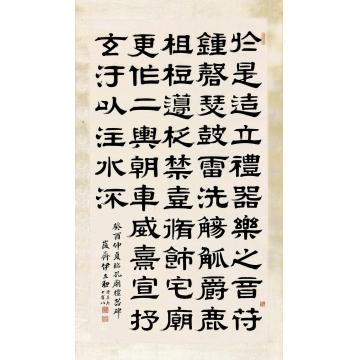 於是造立禮器樂之音苻
鍾磬瑟鼓雷洗觴觚爵鹿
柤梪籩柉禁壺脩飾宅廟
更作二輿朝車威熹宣抒
玄汙以注水流
癸酉仲夏臨孔廟禮器碑
峻齋伊立勳時年七十有八